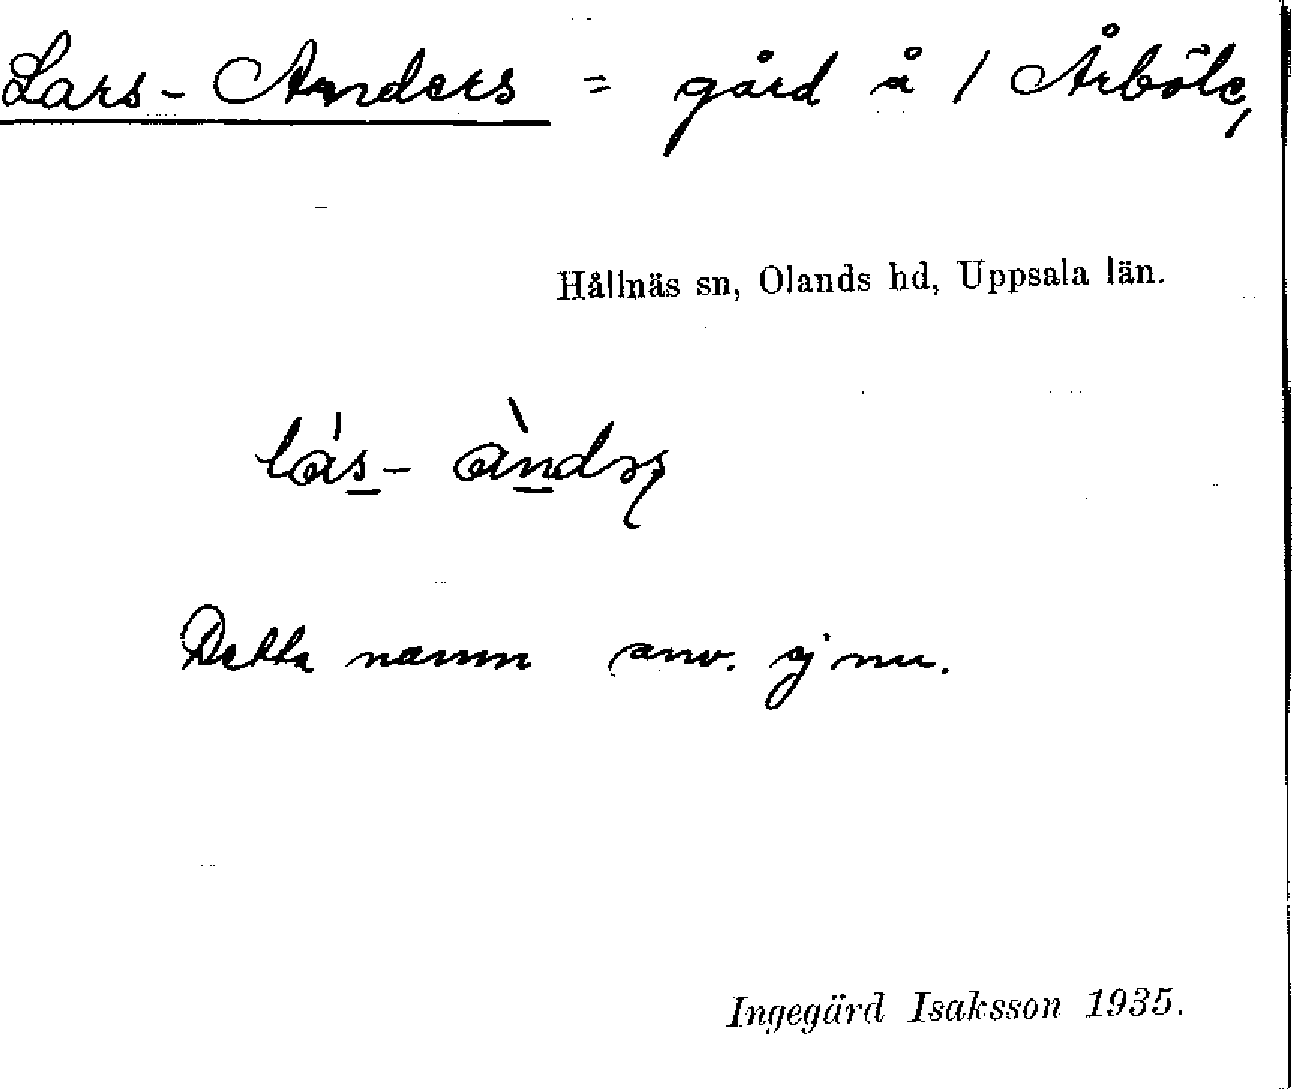 Lars-Anders = gård å 1 Årböle,
Hållnäs sn, Olands hd, Uppsala län.
Detta namn anv. ej nu.
Ingegärd Isaksson 1935.